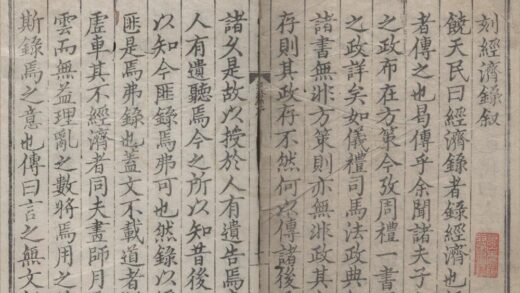 刻經濟錄叙
饒天民曰經濟錄者錄經濟也
者傳之也曷傳乎余聞諸夫子
之政布在方策今攷周禮一書
之政詳矣如儀禮司馬法政典
諸書無非方策則亦無非政其
存則其政存不然何以傳諸後
諸乆是故以授於人有遺告焉
人有遺聽焉今之所以知昔後
以知今匪錄焉弗可也然錄以
匪是焉弗錄也蓋文不載道者
虛車其不經濟者同夫畫師月
雲而無益理亂之數將焉用之
斯錄焉之意也傳曰言之無文